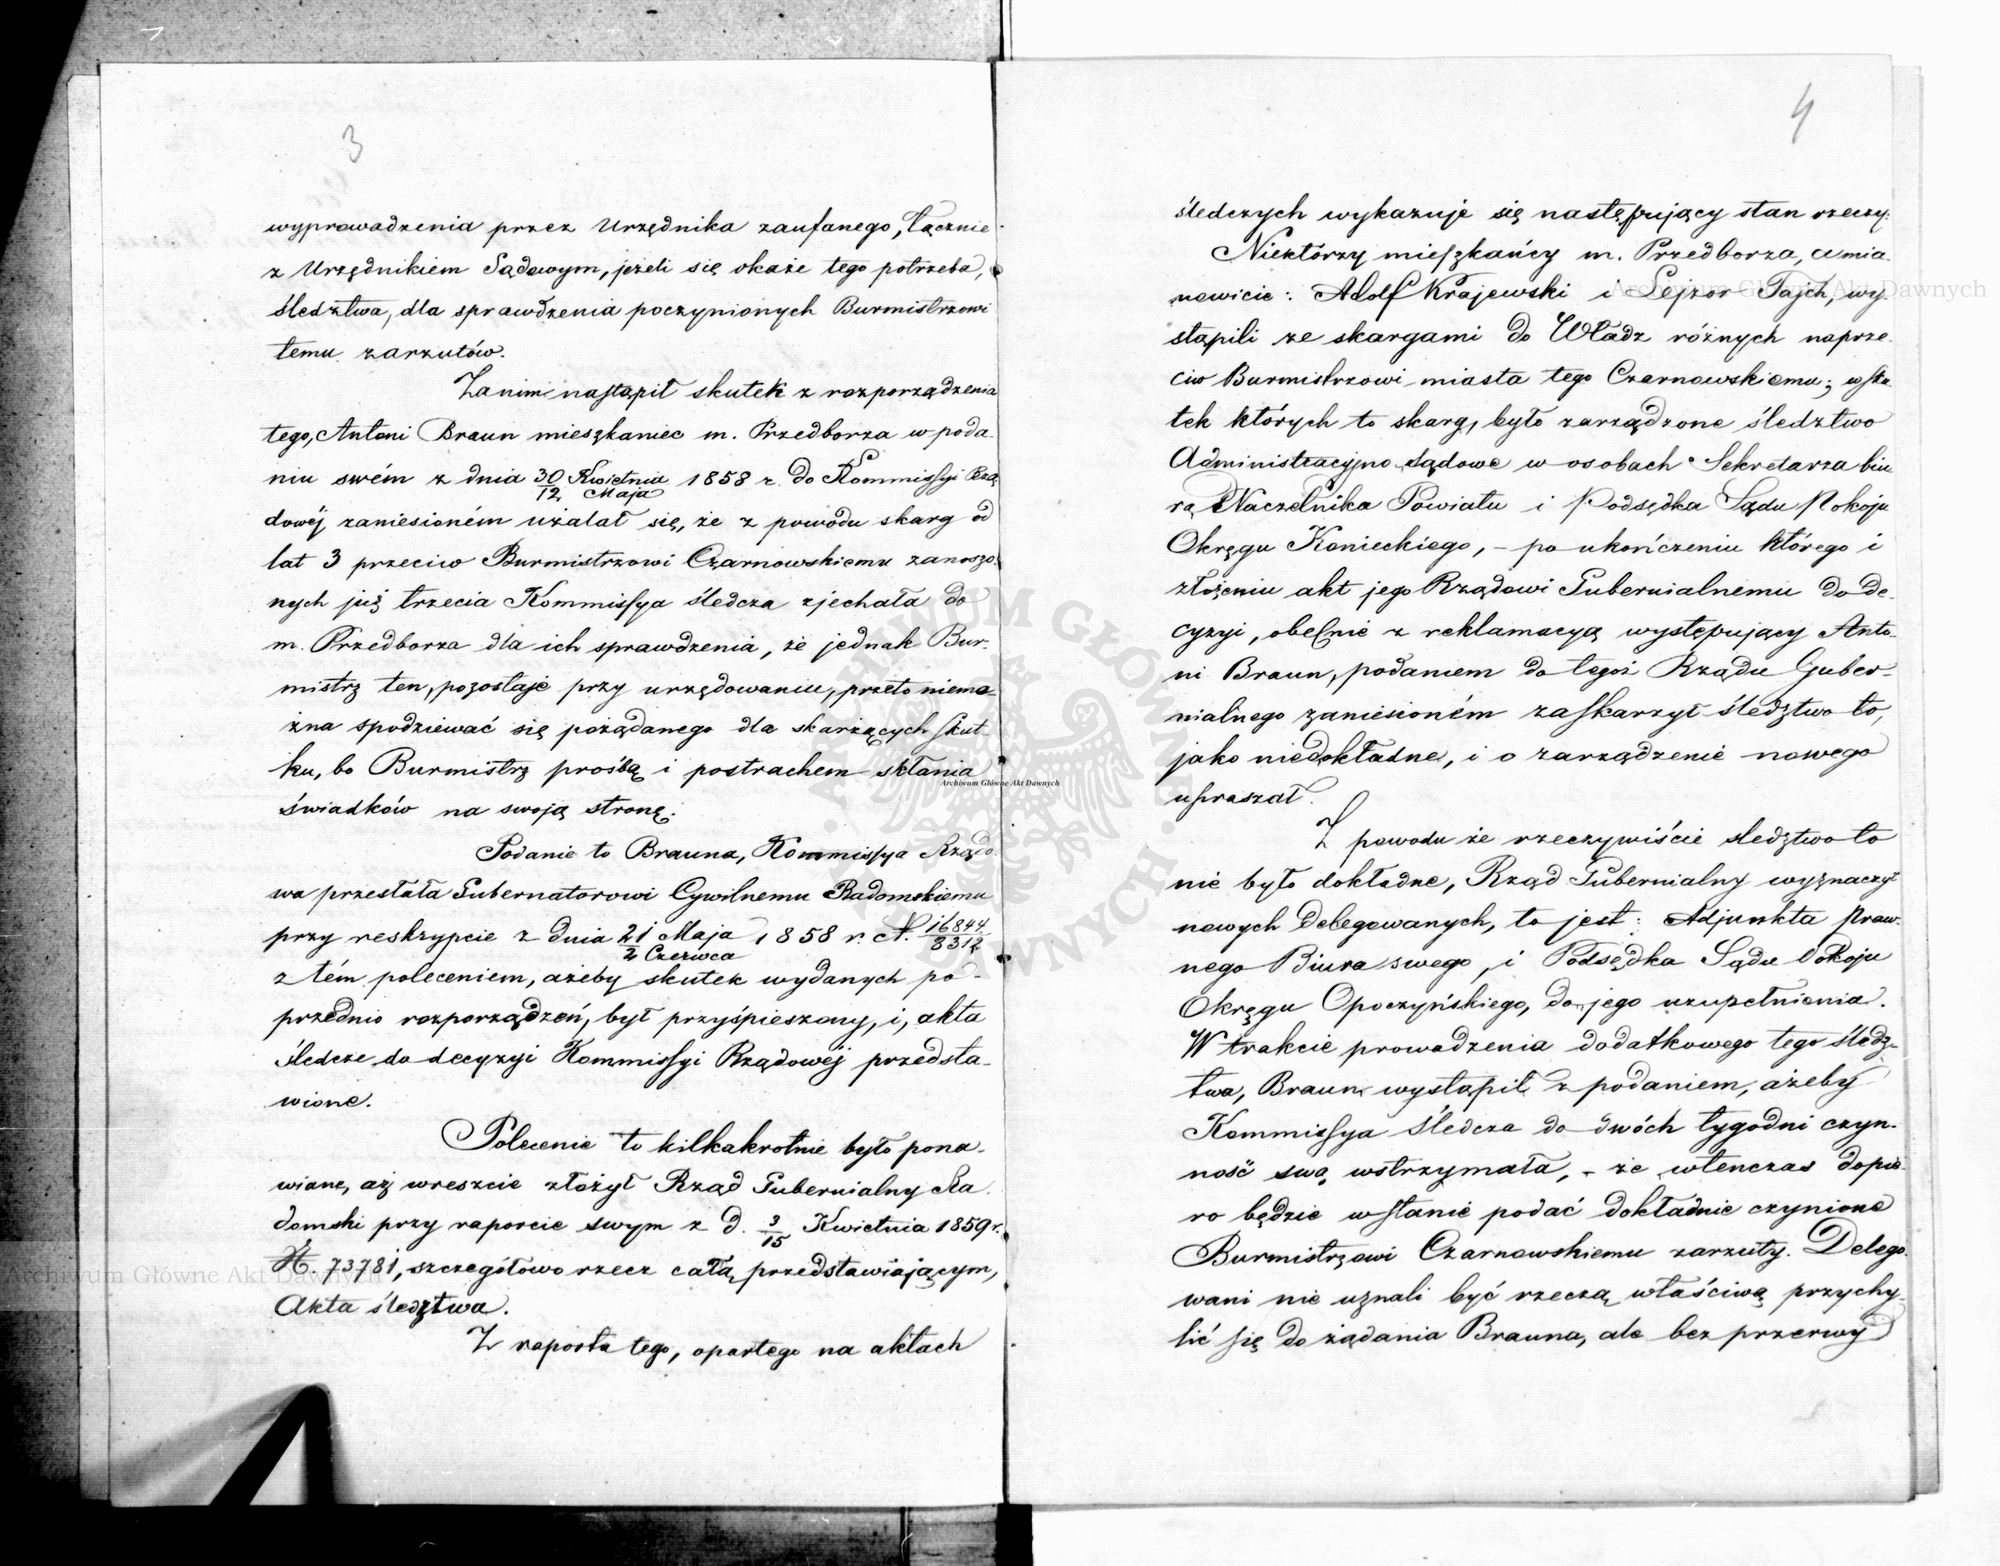 3
wyprowadzenia przez Urzędnika zaufanego, łącznie
z Urzędnikiem Sądowym, jeżeli się okaże tego potrzeba,
śledztwa, dla sprawdzenia poczynionych Burmistrzowi
temu zarzutów.
Zanim nastąpił skutek z rozporządzenia
tego, Antoni Braun mieszkaniec m. Przedborza w poda-
niu swém z dnia 30 Kwietnia / 12 Maja 1858 r. do Kommissyi Rzą
dowéj zaniesioném użalał się, że z powodu skarg od
lat 3 przeciw Burmistrzowi Czarnowskiemu zanoszo-
nych już trzecia Kommissya śledcza zjechała do
m. Przedborza dla ich sprawdzenia, że jednak Bur-
mistrz ten, pozostaje przy urzędowaniu, przeto niemo-
żna spodziewać się pożądanego dla skarżących skut-
ku, bo Burmistrz prośbą i postrachem skłania
świadków na swoją stronę.
Podanie to Brauna, Kommissya Rządo
wa przesłała Gubernatorowi Cywilnemu Radomskiemu
przy reskrypcie z dnia 21 Maja / 2 Czerwca 1858 r. N. 16844/8312
z tém poleceniem, ażeby skutek wydanych po-
przednio rozporządzeń, był przyśpieszony, i, akta
śledcze do decyzyi Kommissyi Rządowéj przedsta-
wione.
Polecenie to kilkakrotnie było pona-
wiane, aż wreszcie złożył Rząd Gubernialny Ra
domski przy raporcie swym z d. 3/15 Kwietnia 1859 r.
N. 73781, szczegółowo rzecz całą przedstawiającym,
Akta śledztwa.
Z raportu tego, opartego na aktach
4
śledczych wykazuje się następujący stan rzeczy:
Niektórzy mieszkańcy m. Przedborza, a mia-
nowicie: Adolf Krajewski i Lejzor Tajch, wy-
stąpili ze skargami do Władz różnych naprze-
ciw Burmistrzowi miasta tego Czarnowskiemu; w sku
tek których to skarg, było zarządzone śledztwo
Administracyjno sądowe w osobach Sekretarza biu
ra Naczelnika Powiatu i Podsędka Sądu Pokoju
Okręgu Konieckiego, – po ukończeniu którego i
złożeniu akt jego Rządowi Gubernialnemu do de-
cyzyi, obecnie z reklamacyą występujący Anto-
ni Braun, podaniem do tegoż Rządu Guber-
nialnego zaniesioném zaskarżył śledztwo to,
jako niedokładne, i o zarządzenie nowego
upraszał.
Z powodu że rzeczywiście sledztwo to
nie było dokładne, Rząd Gubernialny wyznaczył
nowych Delegowanych, to jest: Adjunkta Praw-
nego Biura swego, i Podsędka Sądu Pokoju
Okręgu Opoczyńskiego, do jego uzupełnienia.
W trakcie prowadzenia dodatkowego tego śledz-
twa, Braun wystąpił z podaniem, ażeby
Kommissya śledcza do dwóch tygodni czyn-
ność swą wstrzymała, – że wtenczas dopie-
ro będzie w stanie podać dokładnie czynione
Burmistrzowi Czarnowskiemu zarzuty. Delego-
wani nie uznali być rzeczą właściwą przychy-
lić się do żądania Brauna, ale bez przerwy
Archiwum Główne Akt Dawnych
Archiwum Główne Akt Dawnych
Archiwum Główne Akt Dawnych
ARCHIWUM GŁÓWNE AKT DAWNYCH